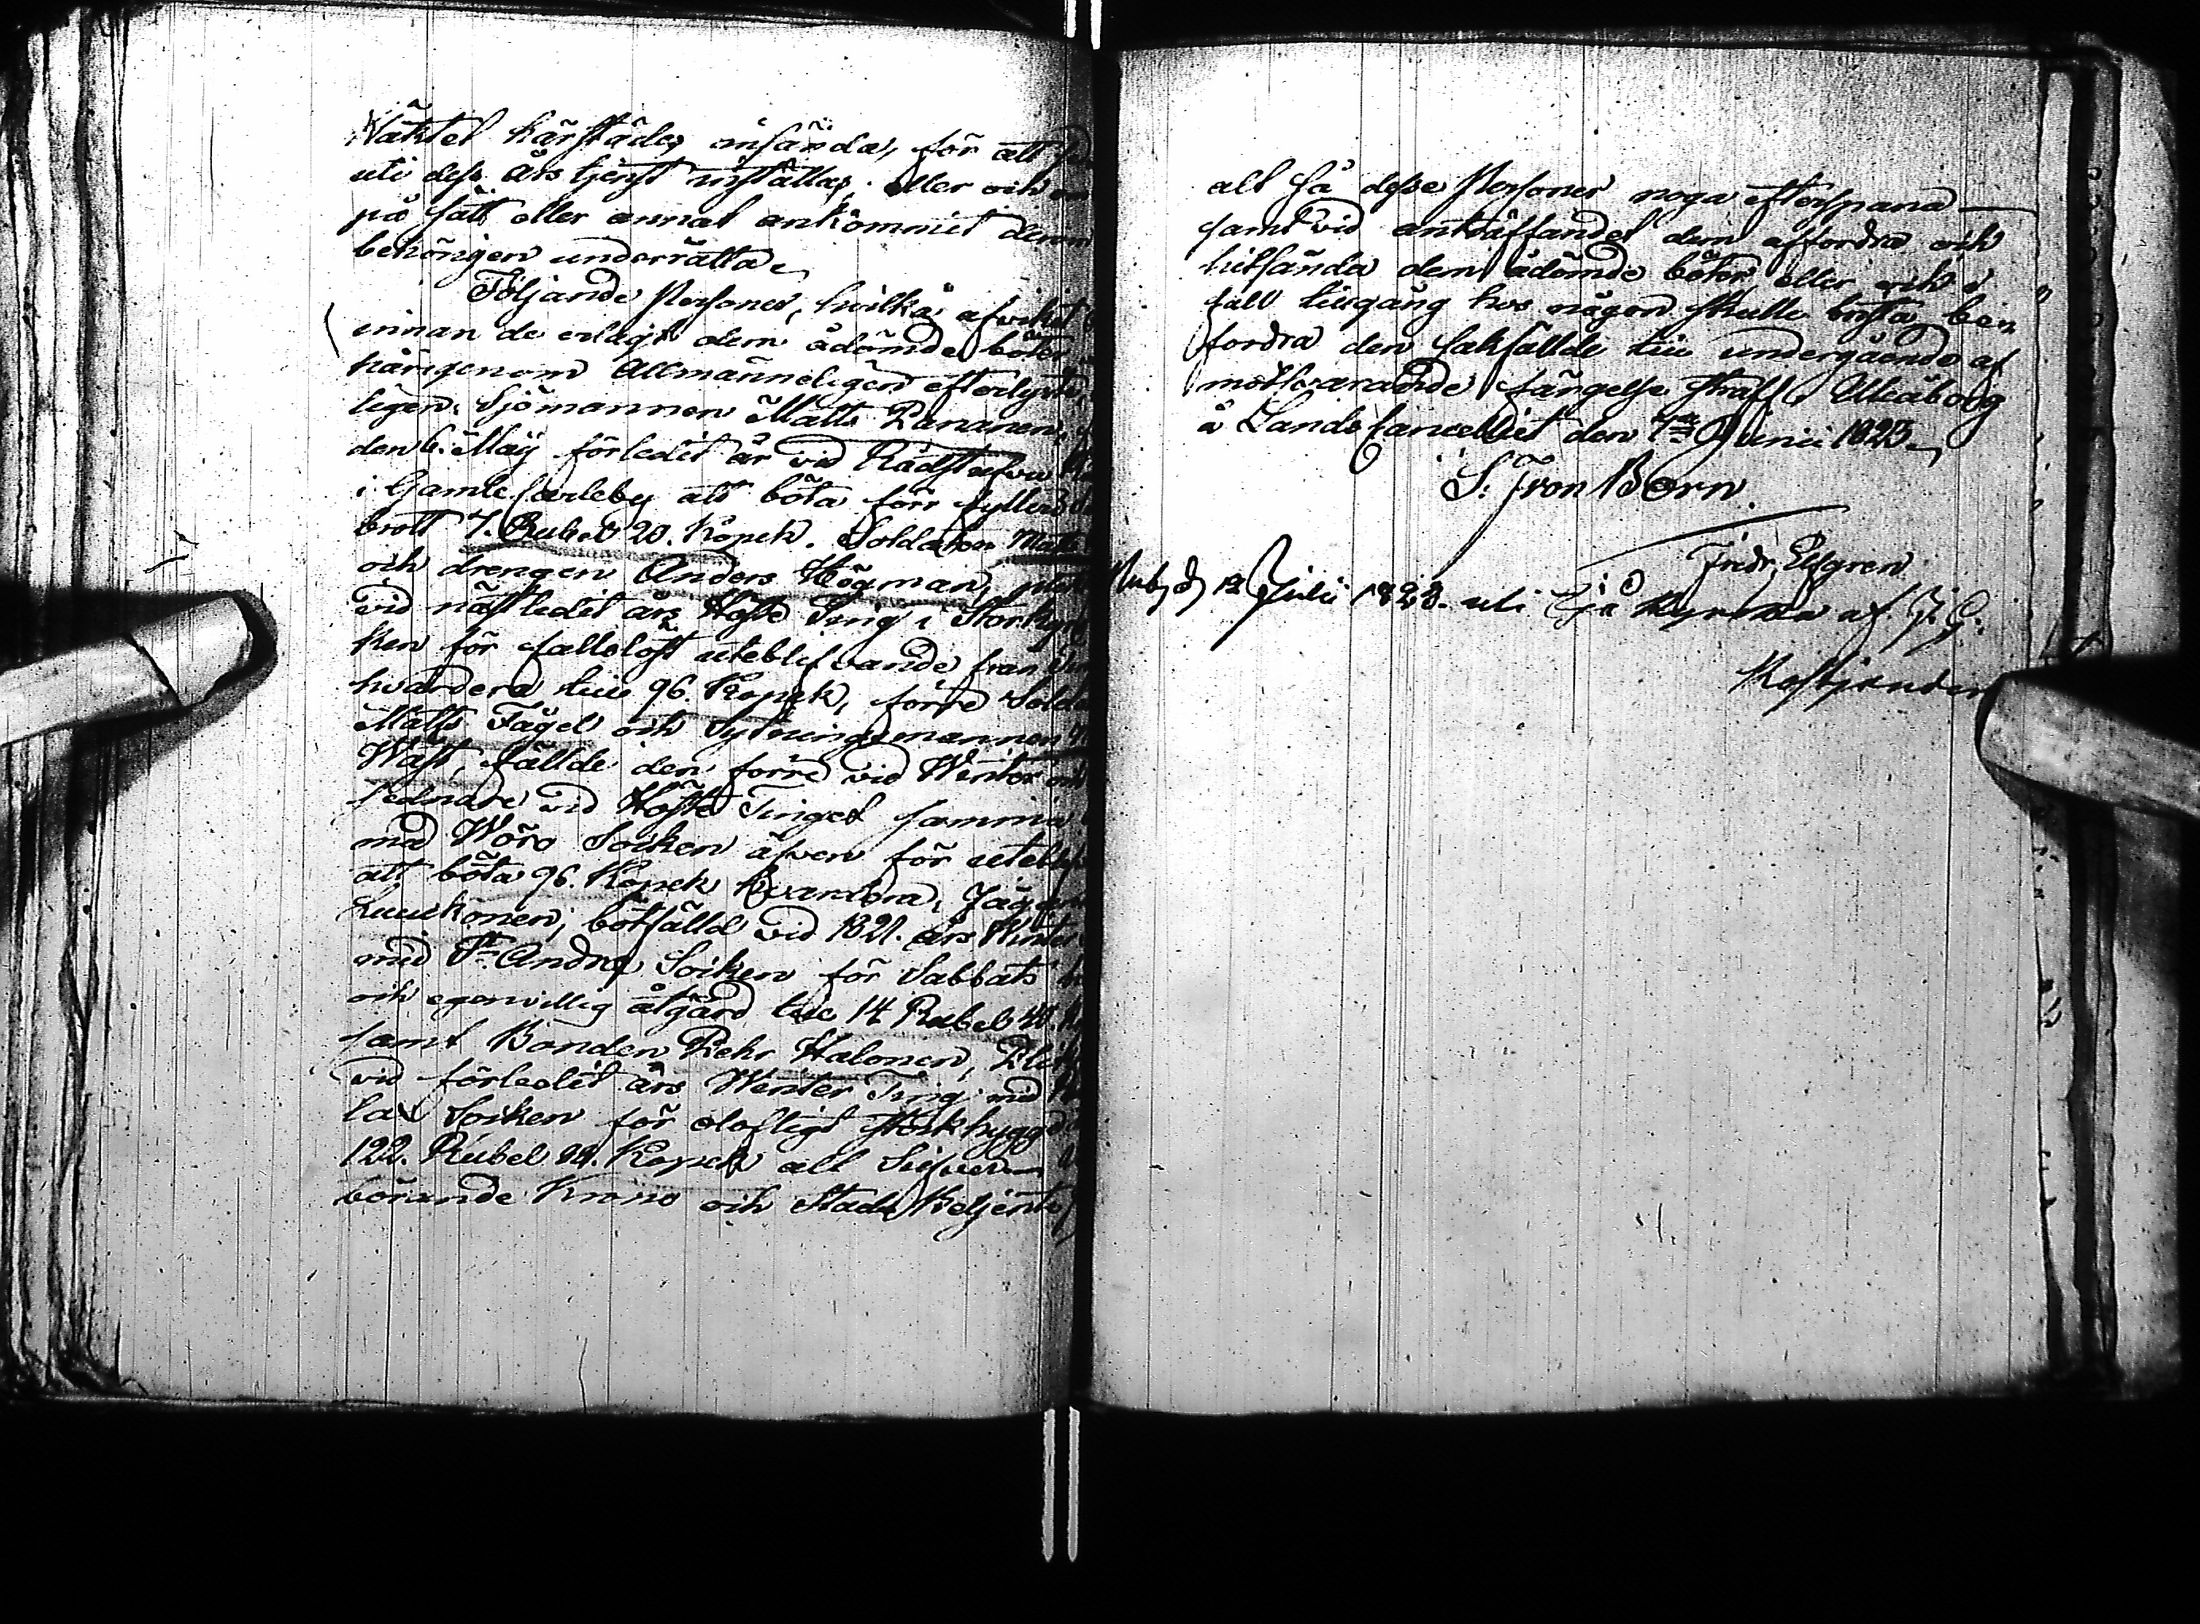 Häktet härstädes insända, för att
uti dess Års tjenst inställas, eller och
på sätt eller annat ankommit derom
behörigen underrätta
Följande Personer, hvilka afvikit
innan de erlagt dem ådömde böter
härigenom Allmänneligen efterlyste,
ligen. Sjömannen Matts Pananen,
den 6. Maij förledit år vid Rådstufvu
i Gamle Carleby att böta för fylleri
brott 7. Rubel 20. Kopek. Soldaten Matts
och drengen Anders Högman,
vid nästledit års Höste Ting i Storkyro
ken för falleslöst uteblifvande från
hvardera till 96. Kopek, förre Solda
Matts Fågel och Sytningsmannen
Wäst, fällde den förre vid Winter och
sednare vid Höste Tinget samma
med Wörå Socken äfven för utebli
att böta 96. Kopek hvardera, Jäga
Luukonen, botfälld vid 1821. års Winter
med St. Andreæ Socken för Sabbats
och egenvillig åtgärd till 14 Rubel 40.
samt Bonden Pehr Halonen,
vid förledit års Winter Ting med
lax Socken för olofligt storkhygge
122. Rubel 24. Kopek allt Silfver
börande Krono och Stads Betjente
alt få desse Personer noga efterspana
samt vid anträffandet dem affordra och
hitsända dem ådömde böter, eller och i
fall tillgång hos någon skulle brista be=
fordra den sakfällde till undergående af
motsvarande fängelse straff. Uleåborg
å Lands Cancelliet den 7de Junii 1823.
S. F. von Born
Fredr. Elfgren
Publ. d. 12 Julii 1823. uti kyrka af J. G.